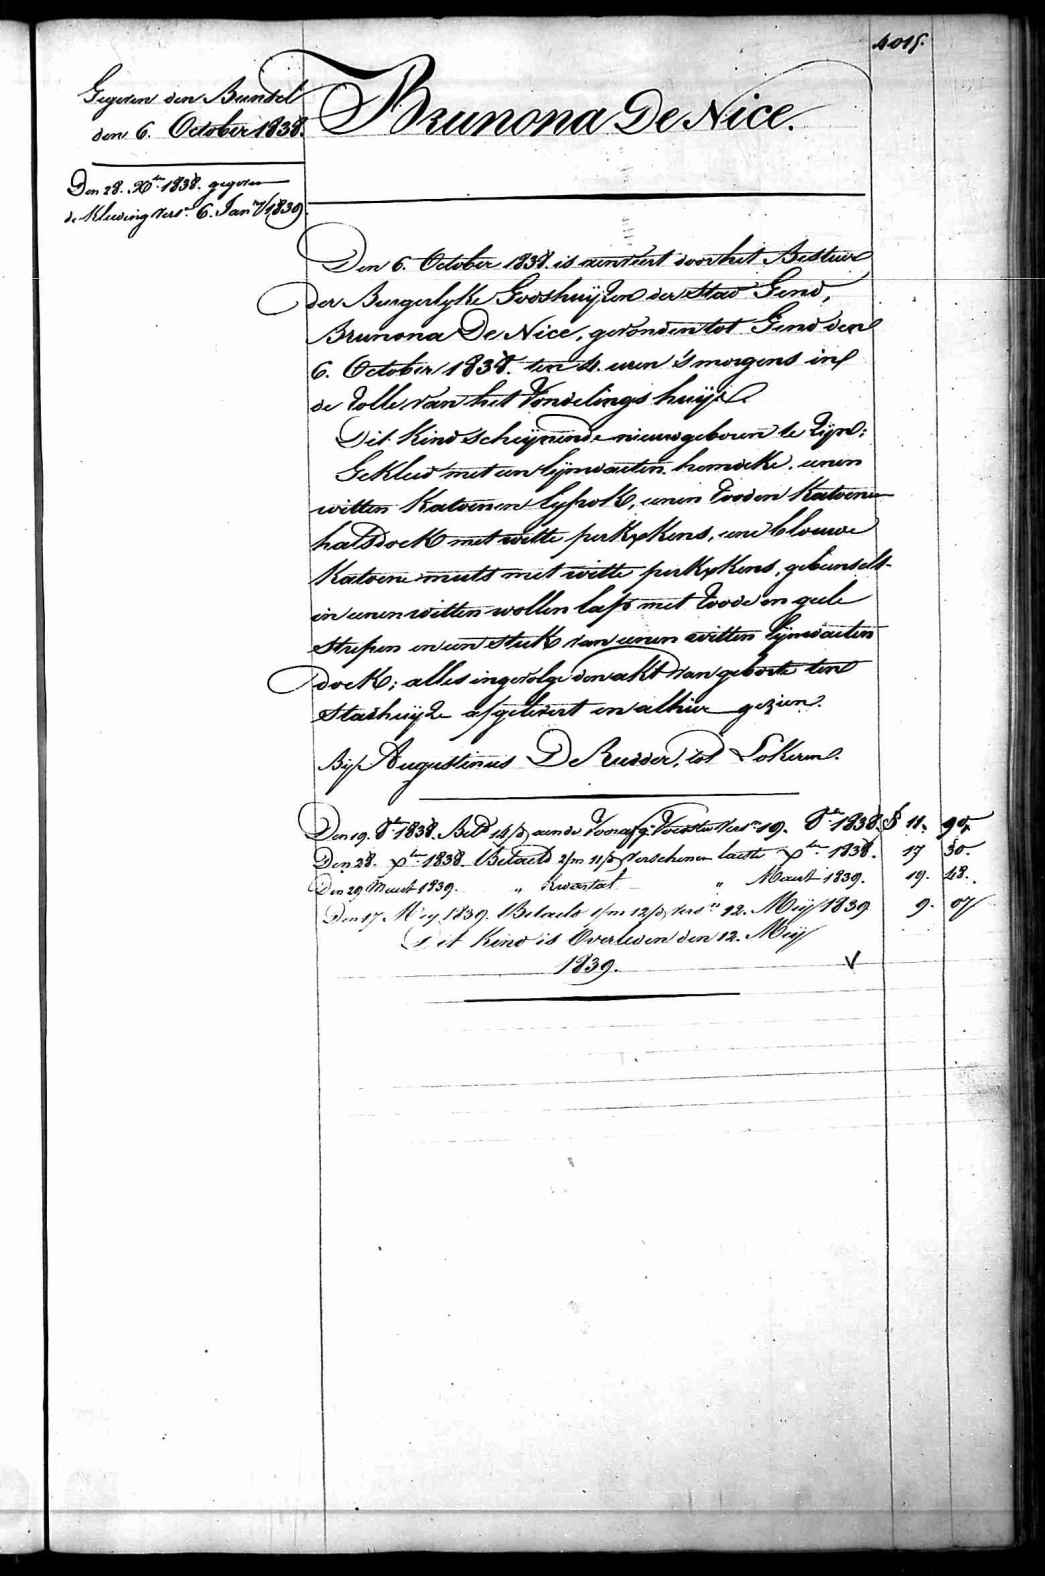 4015.
Gegeven den Bundel
den 6. October 1838.
Den 28. Xbr 1838. gegeven
de Kleeding versn 6. Janry 1839.
Brunona De Nice.
Den 6. October 1838. is aenveert door het Bestuur
der Burgerlyke Godshuyzen der Stad Gend,
Brunona De Nice, gevonden tot Gend den
6. October 1838. ten 4. uren 's morgens in
de rolle van het Vondelings huyze.
Dit kind scheynende nieuwgeboren te zyn:
Gekleed met een lynwaeten hemdeke, eenen
witten katoenen lyfrok, eenen rooden katoenen
halsdoek met witte perkxkens, eene blouwe
katoene muts met witte perkxkens, gebunselt
in eenen witten wollen lap met roode en geele
strepen en een stuk van eenen witten lynwaeten
doek; alles ingevolge den akt van geborte ten
Stadhuyze afgelevert en alhier gezien.
By Augustinus De Rudder, tot Lokeren.
Den 19. 8br 1838. Beld 14/d aen de Voorafg. Voedster versn 19. 8br 1838. § 11. 90.
Den 28. Xbr 1838. Betaeld 2/m 11/d verschenen laeste Xbr 1838. 17 30.
Den 29 Maert 1839. " Kwartal " Maert 1839. 19. 48.
Den 17 Mey 1839. Betaeld 1/m 12/d versn 12. Mey 1839 9. 07
Dit Kind is Overleden den 12. Mey
1839. V